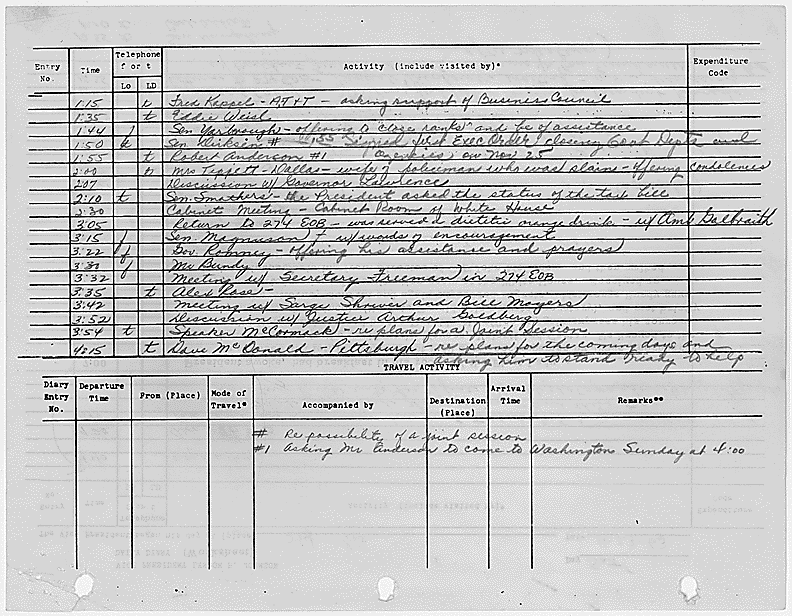 Entry No. Time Telephone f or t Lo LD Activity (include visited by)* Expenditure Code
1:15 t Fred Kappel - AT&T - asking support of Business Council
1:35 t Eddie Weisl
1:44 f Sen Yarborough - offering to "close ranks" and be of assistance
1:50 t Sen Dirksen # 1:55 Signed first Exec Order closing Govt Depts and
1:55 t Robert Anderson #1 agencies, on Nov 25
2:00 Mrs Tippett - Dallas - wife of policeman who was slain - offering condolences
2:07 Discussion w/ Governor Lawrence
2:10 t Sen. Smathers - the President asked the status of the tax bill
2:30 Cabinet Meeting - Cabinet Room of White House
3:05 Return to 274 EOB - was served a dietetic orange drink - w/ Amb Galbraith
3:15 f Sen. Magnuson w/ words of encouragement
3:22 f Gov. Romney - offering his assistance and prayers
f Mc Bundy
3:32 Meeting w/ Secretary Freeman in 274 EOB
3:35 t Alex Rose -
3:42 Meeting w/ Sarge Shriver and Bill Moyers
3:52 Discussion w/ Justice Arthur Goldberg
3:54 t Speaker McCormack - re plans for a Joint Session
4:15 t Dave McDonald - Pittsburgh - re plans for the coming days and
asking him to stand ready to help
TRAVEL ACTIVITY
Diary Entry No. Departure Time From (Place) Mode of Travel* Accompanied by Destination (Place) Arrival Time Remarks**
# Re possibility of a joint session
#1 Asking Mr Anderson to come to Washington Sunday at 4:00